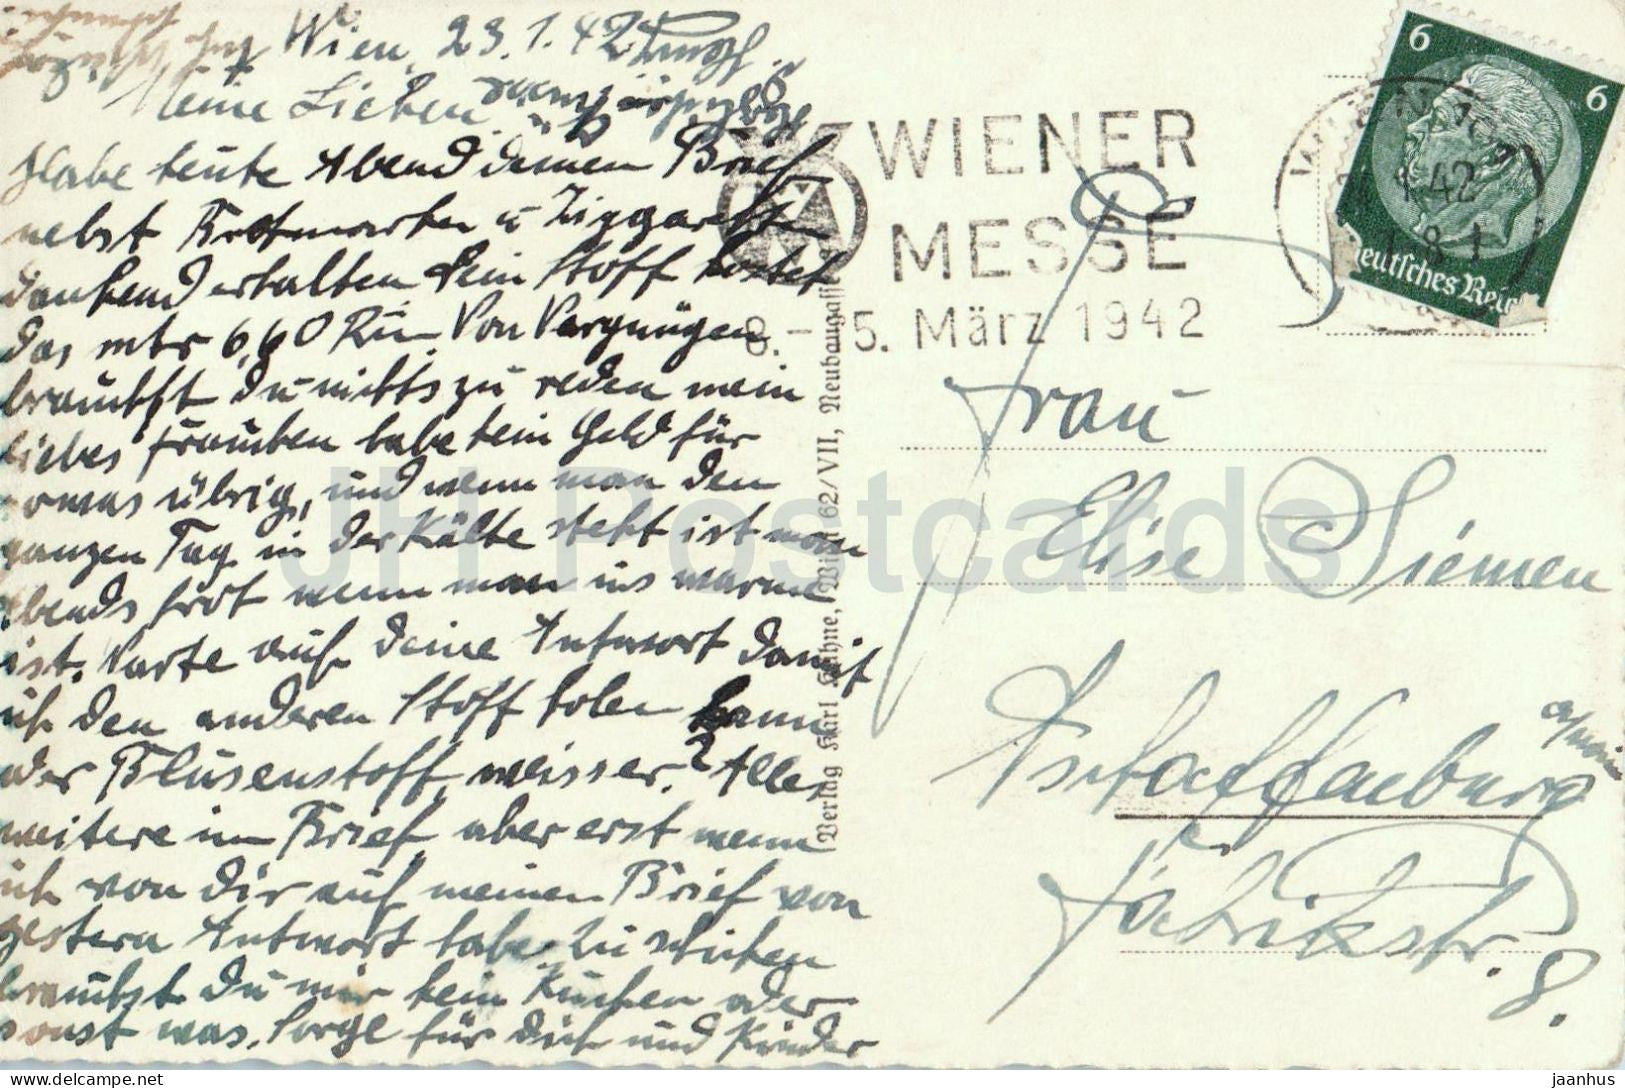 Wien, 23.1.42
Meine Lieben
Habe heute Abend deinen Brief
nebst Brotmarken u Ziggaretten
dankend erhalten Dein Stoff kostet
das mtr 6,60 RM Von Vergnügen
brauchst du nichts zu reden mein
liebes Frauchen habe kein Geld für
sowas übrig, und wenn man den
ganzen Tag in der Kälte steht ist man
Abends froh wenn man ins warme
ist. Warte auf deine Antwort damit
ich den anderen Stoff holen kann
oder Blusenstoff weisser? Alles
weitere im Brief, aber erst wenn
ich von dir auf meinen Brief von
gestern Antwort habe. Zu schicken
brauchst du mir kein Kuchen oder
sonst was. Sorge für dich und Kinder
Verlag Karl Kühne, Wien 62/VII, Neubaugasse
WIENER
MESSE
8. – 15. März 1942
6 6
Deutsches Reich
Frau
Elise Siemen
Aschaffenburg a/Main
Fabrikstr. 8.
JH Postcards
delcampe.net
jaanhus